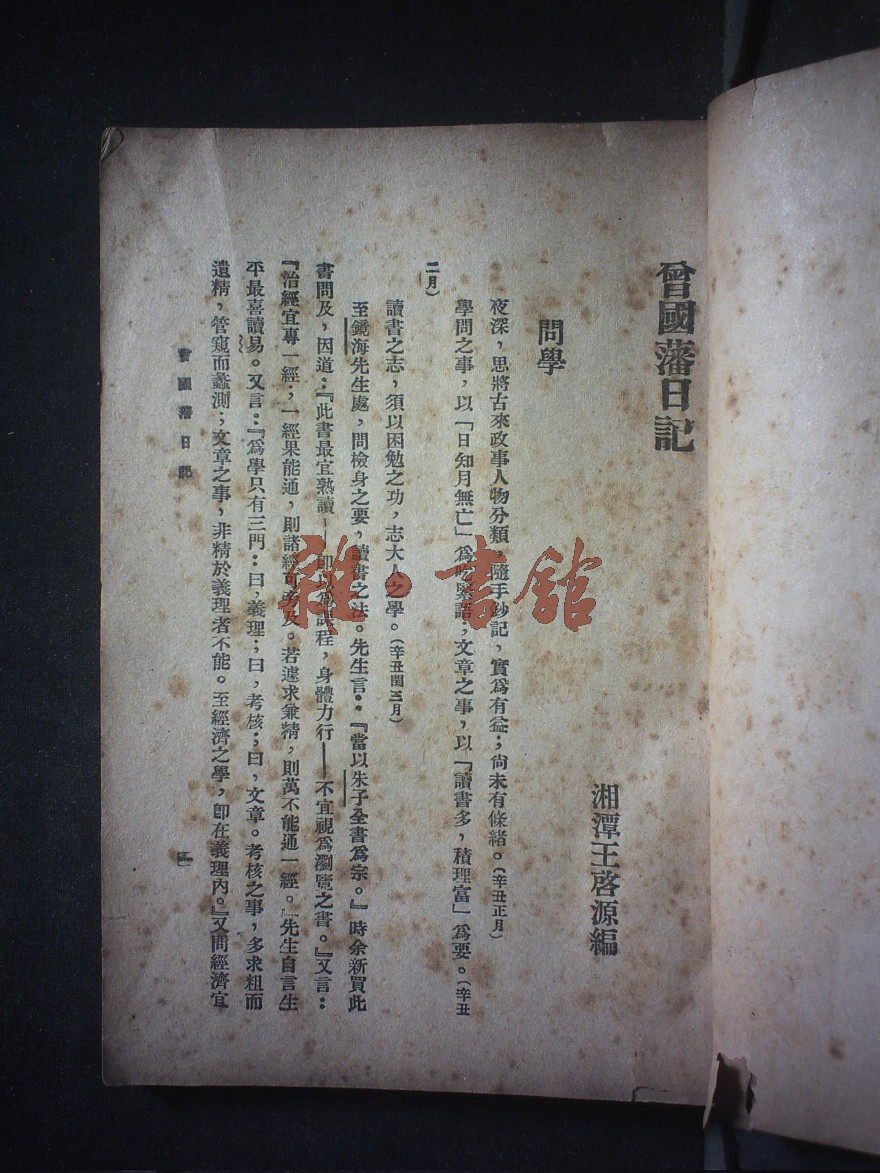 曾國藩日記
湘潭王啓源編
問學
夜深，思將古來政事人物分類，隨手鈔記，實爲有益；尚未有條緒。（辛丑正月）
學問之事，以「日知月無亡」爲吃緊語；文章之事，以「讀書多，積理富」爲要。（辛丑
二月）
讀書之志，須以困勉之功，志大人之學。（辛丑閏三月）
至鏡海先生處，問檢身之要，讀書之法。先生言：『當以朱子全書爲宗。』時余新買此
書問及，因道：『此書最宜熟讀——卽以爲課程，身體力行——不宜視爲瀏覽之書。』又言：
『治經宜專一經；一經果能通，則諸經可旁及。若遽求兼精，則萬不能通一經。』先生自言生
平最喜讀易。又言：『爲學只有三門：曰，義理；曰，考核；曰，文章。考核之事，多求粗而
遺精，管窺而蠡測；文章之事，非精於義理者不能。至經濟之學，卽在義理內。』又問經濟宜
曾國藩日記
一
雜·書館